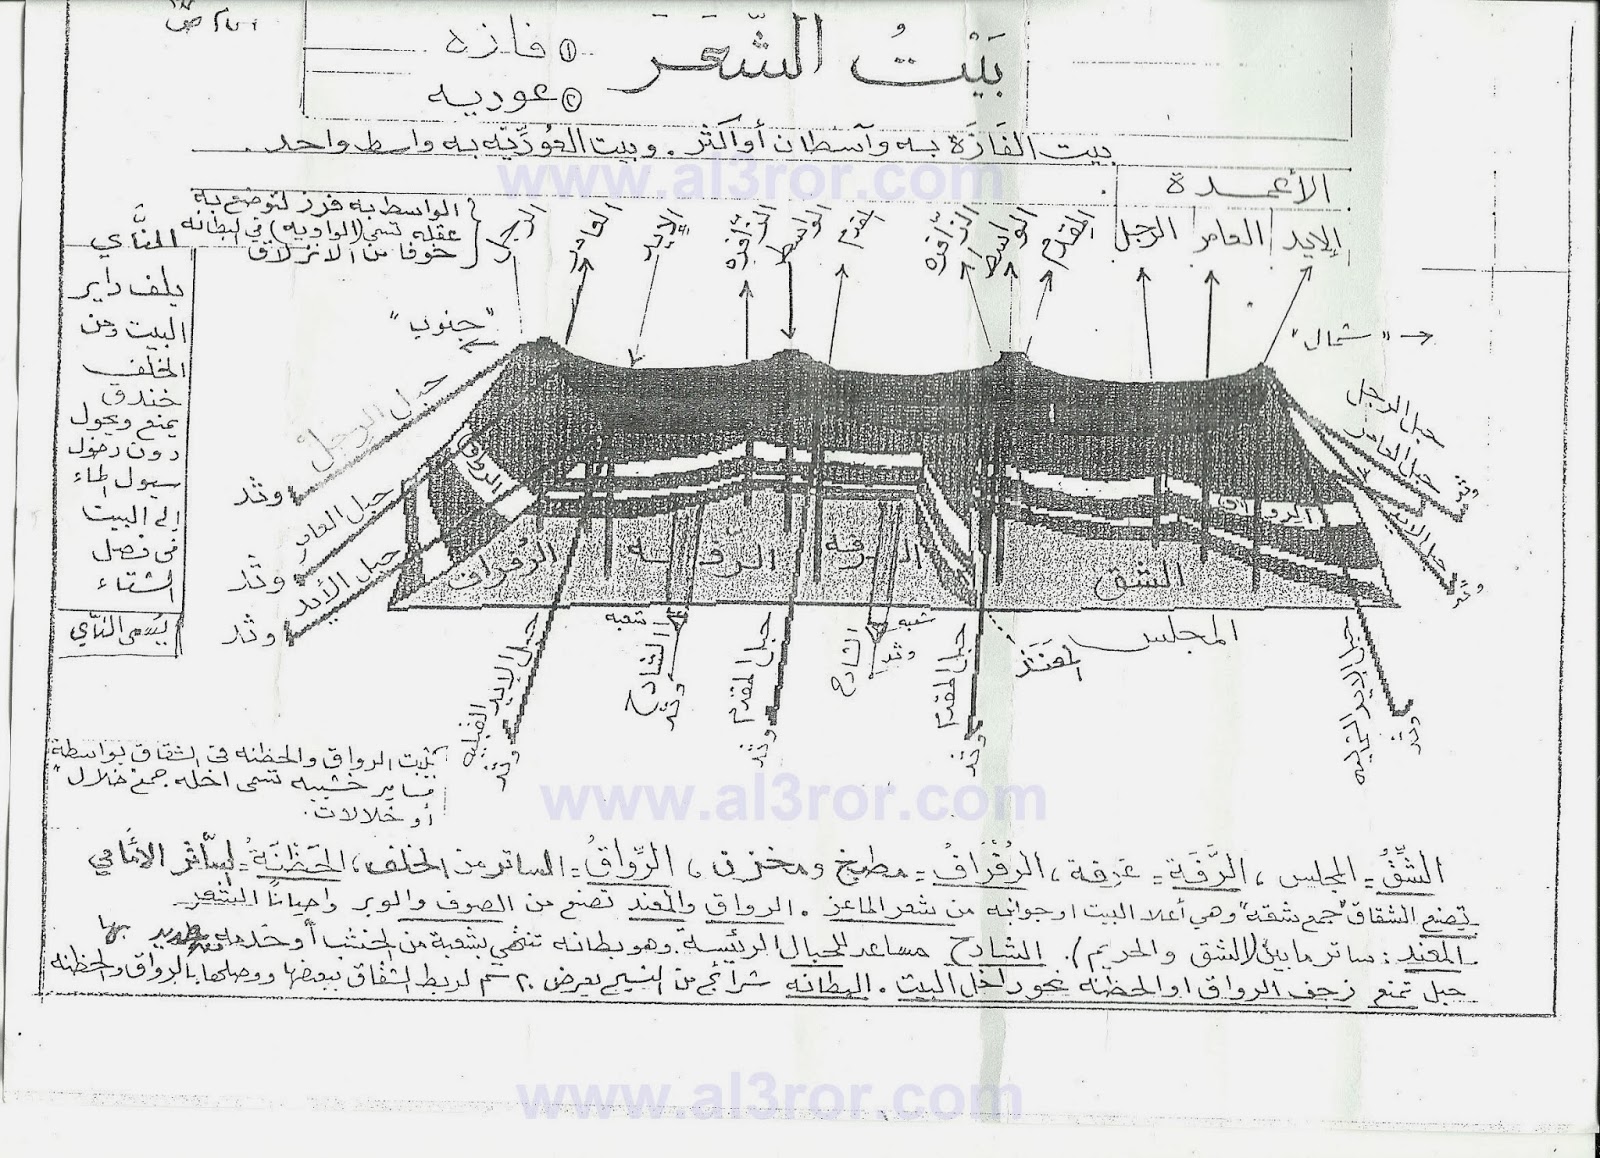 بَيْتُ الشَّعَر
① فازه
② عوديه
بيت الفَازَة به وآسطان أو اكثر. وبيت العُودِيّه به واسط واحد.
www.al3ror.com
الأعمدة
الإيد
العامر
الرجل
المقدم
الواسط
الزّافره
المقدم
الواسط
الزّافره
الإيد
العامر
الرجل
الواسط به فرز لتوضع به
عقله تسمى (الواويه) في البطانه
خوفا من الانزلاق
النأي
يلف داير
البيت ومن
الخلف
خندق
يمنع ويحول
دون دخول
سيول الماء
إلى البيت
في فصل
الشتاء
يُسمى النأي
"جنوب"
"شمال"
حبل الرجل
حبل العامر
حبل الأيد
وتد
وتد
وتد
حبل الرجل
حبل العامر
حبل الايد
وتد
وتد
الرواق
الرواق
الرُفراف
الرّفه
الرفه
الشق
المجلس
المعَنَد
حبل الإيد القبليه
وتد
الشادح
شعبه
وتد
حبل المقدم
وتد
الشادح
شعبه
وتد
حبل المقدم
وتد
حبل الايد
وتد
يثبت الرواق والحظنه في الشقاق بواسطة
مسامير خشبيه تسمى اخله جمع خلال
أو خلالات.
www.al3ror.com
الشِّقُّ = المجلس، الرَّفَة = غرفة، الرُفْرَافُ = مطبخ ومخزن، الرِّوَاقُ = الساتر من الخلف، الحَظْنَةُ = الساتر الأمامي
تصنع الشقاق "جمع شقه" وهي أعلا البيت او جوانبه من شعر الماعز. الرواق والمعند تصنع من الصوف والوبر واحياناً الشعر
المعند: ساتر ما بين (الشق والحريم). الشادح مساعد للحبال الرئيسة. وهو بطانه تنتهي بشعبة من الخشب أو خدمه بها
حبل تمنع زحف الرواق او الحظنه نحو داخل البيت. البطانه شرائح من النسيج بعرض ٢٠ سم لربط الشقاق ببعضها ووصلها بالرواق والحظنه
www.al3ror.com